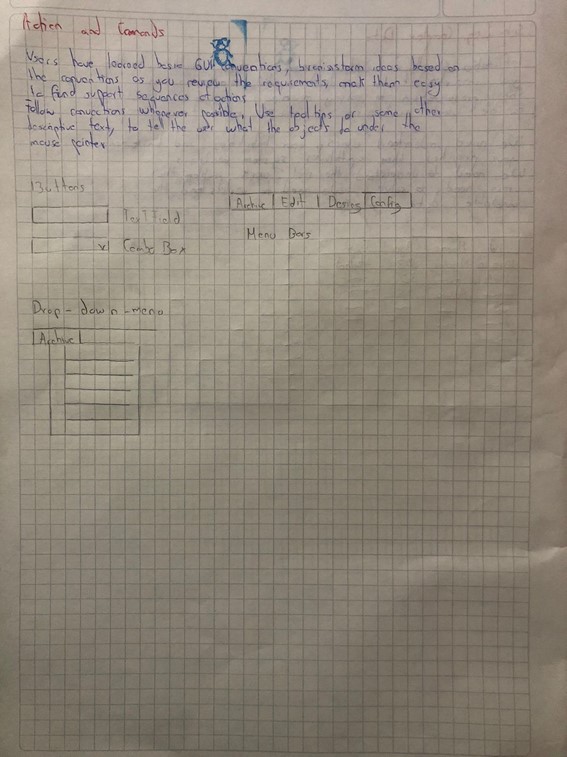 Action and Comands
Users have learned basic GUI conventions, brainstorm ideas based on
the conventions as you review the requirements, mak them easy
to find support sequences of actions
Follow convections whenever possible. Use tool tips or some other
descriptive text, to tell the user what the objects do under the
mouse pointer
Buttons
Text Field
Combo Box
Archive Edit Desing Config
Menu Bars
Drop-down-menu
Archive